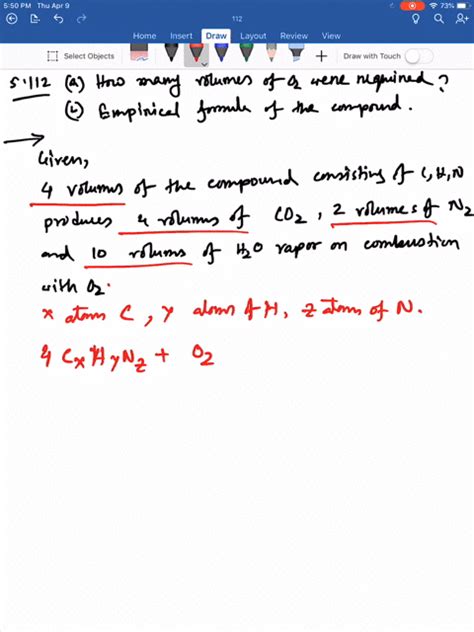 5:50 PM Thu Apr 9
73%
112
Home Insert Draw Layout Review View
Select Objects
Draw with Touch
5.112 (a) How many volumes of O2 were required?
(b) Empirical formula of the compound.
Given,
4 volumes of the compound consisting of C, H, N
produces 4 volumes of CO2, 2 volumes of N2
and 10 volums of H2O vapor on combustion
with O2.
x atoms C, y atoms of H, z atoms of N.
4 CxHyNz + O2